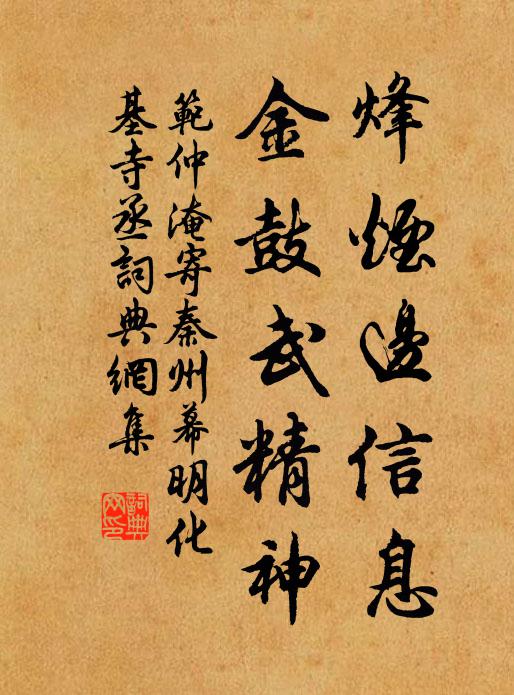 烽煙邊信息
金鼓武精神
範仲淹寄秦州幕明化
基寺丞詞典網集
詞典網印